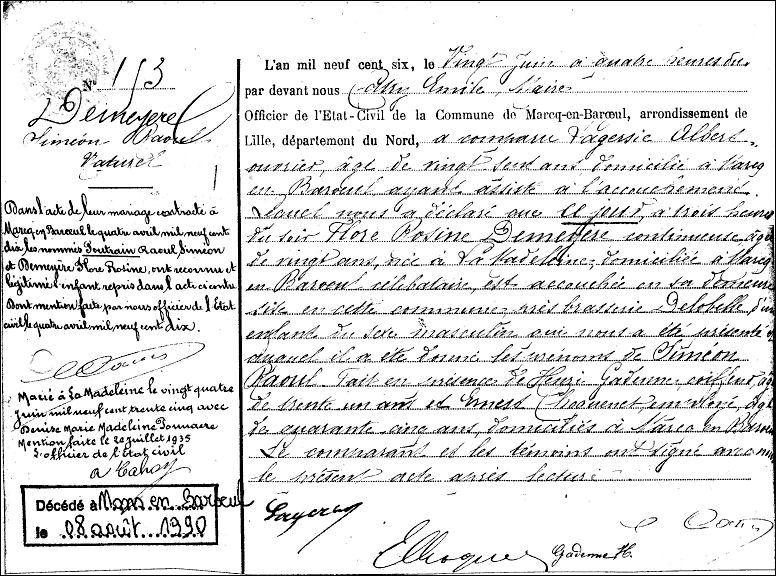 N° 153
Demeyere
Siméon Raoul
Naturel
Dans l'acte de leur mariage contracté à
Marcq en Baroeul le quatre avril mil neuf cent
dix, les nommés Poutrain Raoul, Siméon
et Demeyère Flore Rosine, ont reconnu et
légitimé l'enfant repris dans l'acte ci contre
Dont mention faite par nous officier de l'Etat
civil le quatre avril mil neuf cent dix.
Marié à La Madeleine le vingt quatre
Juin mil neuf cent trente cinq avec
Denise Marie Madeleine
Mention faite le 2 juillet 1935
L'officier de l'état civil
Décédé à Marcq en Baroeul
le 08 août 1990
L'an mil neuf cent six, le Vingt Juin à quatre heures du
par devant nous Emile, Maire
Officier de l'Etat-Civil de la Commune de Marcq-en-Barœul, arrondissement de
Lille, département du Nord, a comparu Albert
ouvrier, âgé de vingt sept ans domicilié à Marcq
en Baroeul ayant assisté à l'accouchement
Lequel nous a déclaré que ce jour, à trois heures
du soir Flore Rosine Demeyere continueuse, âgée
de vingt ans, née à La Madeleine, domiciliée à Marcq
en Baroeul célibataire, est accouchée en sa demeure
sise en cette commune, près brasserie Delobelle d'un
enfant du sexe masculin qui nous a été présenté et
auquel il a été donné les prénoms de Siméon
Raoul. Fait en présence de Henri Gadenne, coiffeur, âgé
de trente un ans et Choquenet, employé, âgé
de quarante cinq ans, domiciliés à Marcq en Baroeul
Le comparant et les témoins ont signé avec nous
le présent acte après lecture
Gadenne H.